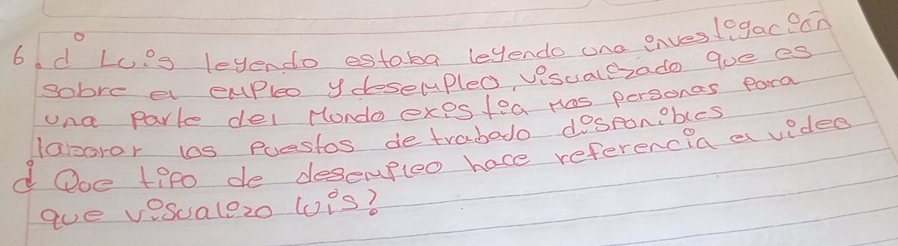 6. d Luis leyendo estaba leyendo una investigación
sobre el empleo y desempleo, visualizado que es
una parte del Mondo existía mas personas para
laborar los puestos de trabado disponibles
d Que tipo de desempleo hace referencia el video
que visualizo luis?